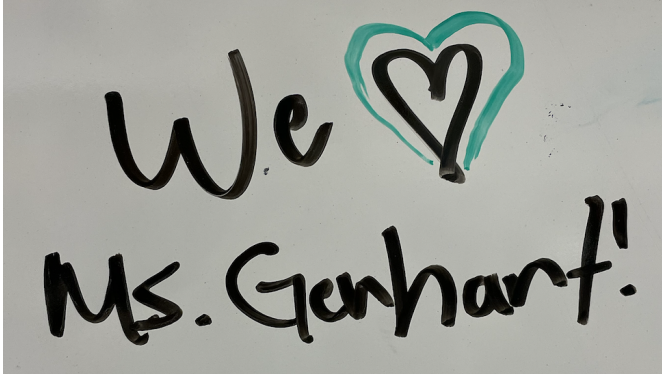 We ♡
Ms. Genhart!